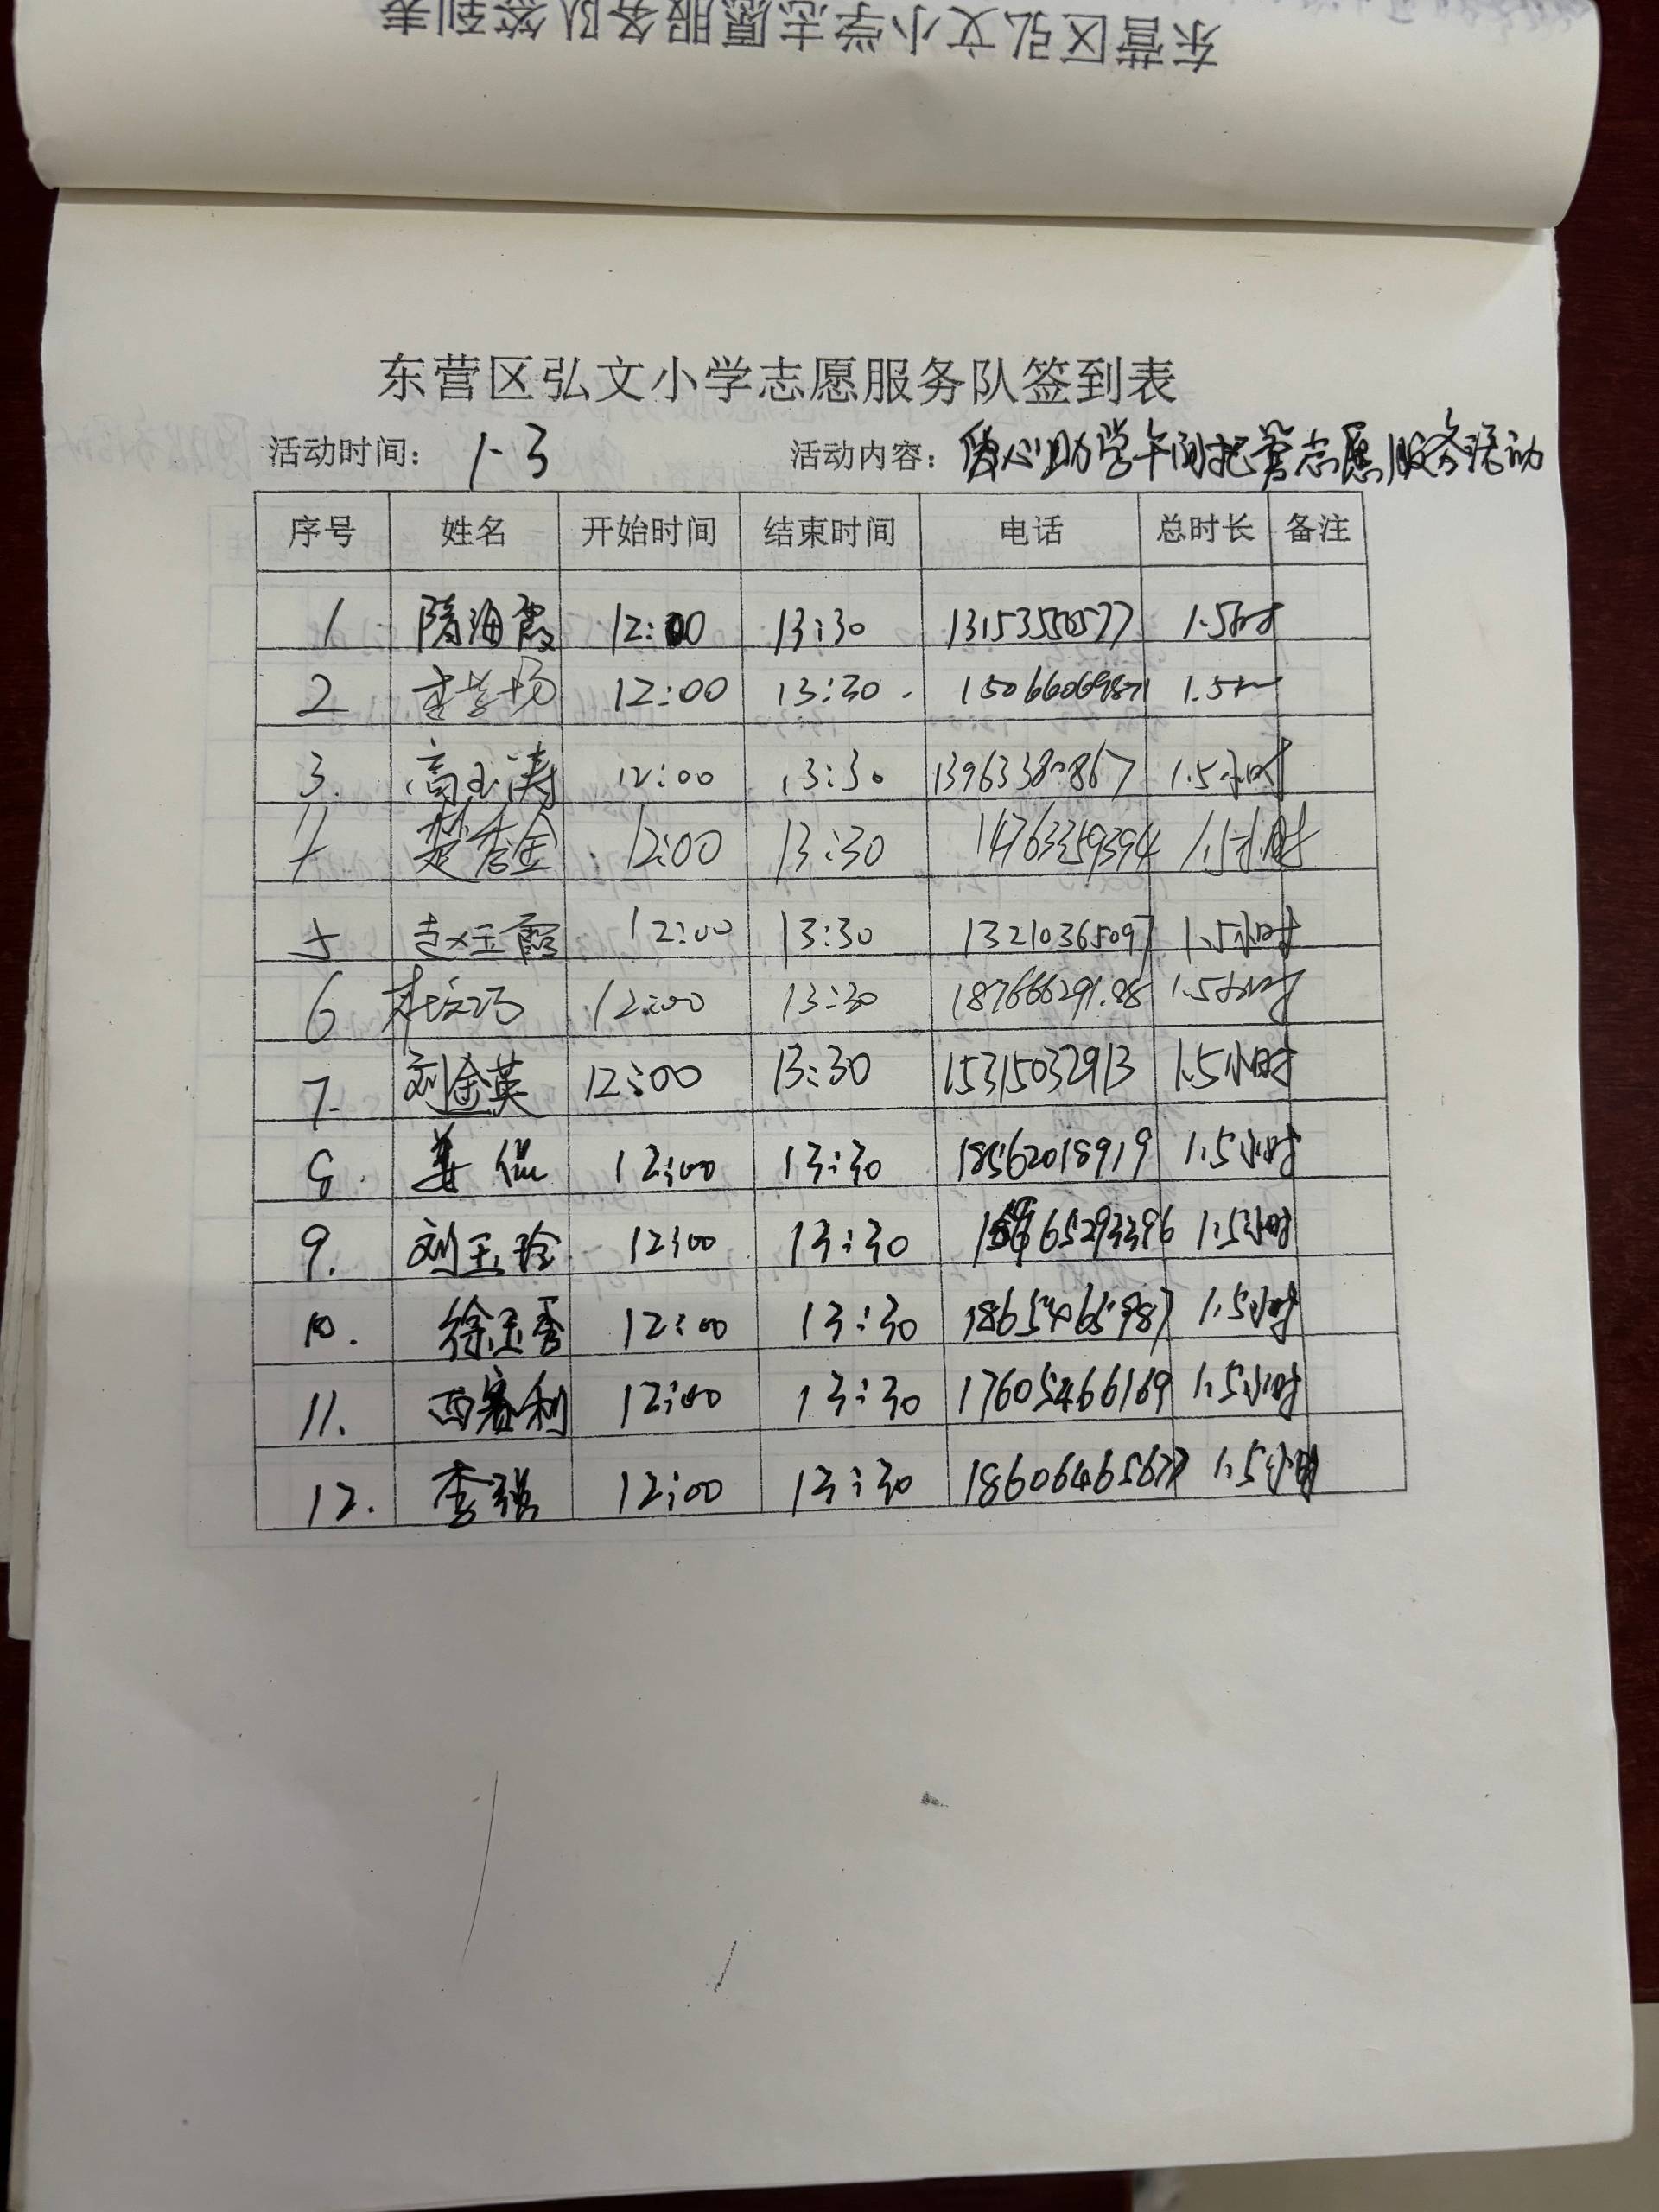 东营区弘文小学志愿服务队签到表
东营区弘文小学志愿服务队签到表
活动时间: 1-3 活动内容: 爱心助学午间托管志愿服务活动
序号 姓名 开始时间 结束时间 电话 总时长 备注
1 隋海霞 12:00 13:30 13153550577 1.5小时
2 12:00 13:30 15066069871 1.5
3. 高玉涛 12:00 13:30 1.5小时
4 楚秀金 12:00 13:30 14763359394 1.5小时
5 赵玉霞 12:00 13:30 13210365097 1.5小时
6 12:00 13:30 1.5小时
7. 刘金英 12:00 13:30 15315032913 1.5小时
8. 姜 12:00 13:30 18562018919 1.5小时
9. 刘玉玲 12:00 13:30 1.5小时
10. 徐玉秀 12:00 13:30 18654065987 1.5小时
11. 西客利 12:00 13:30 17605466169 1.5小时
12. 李强 12:00 13:30 18606465677 1.5小时